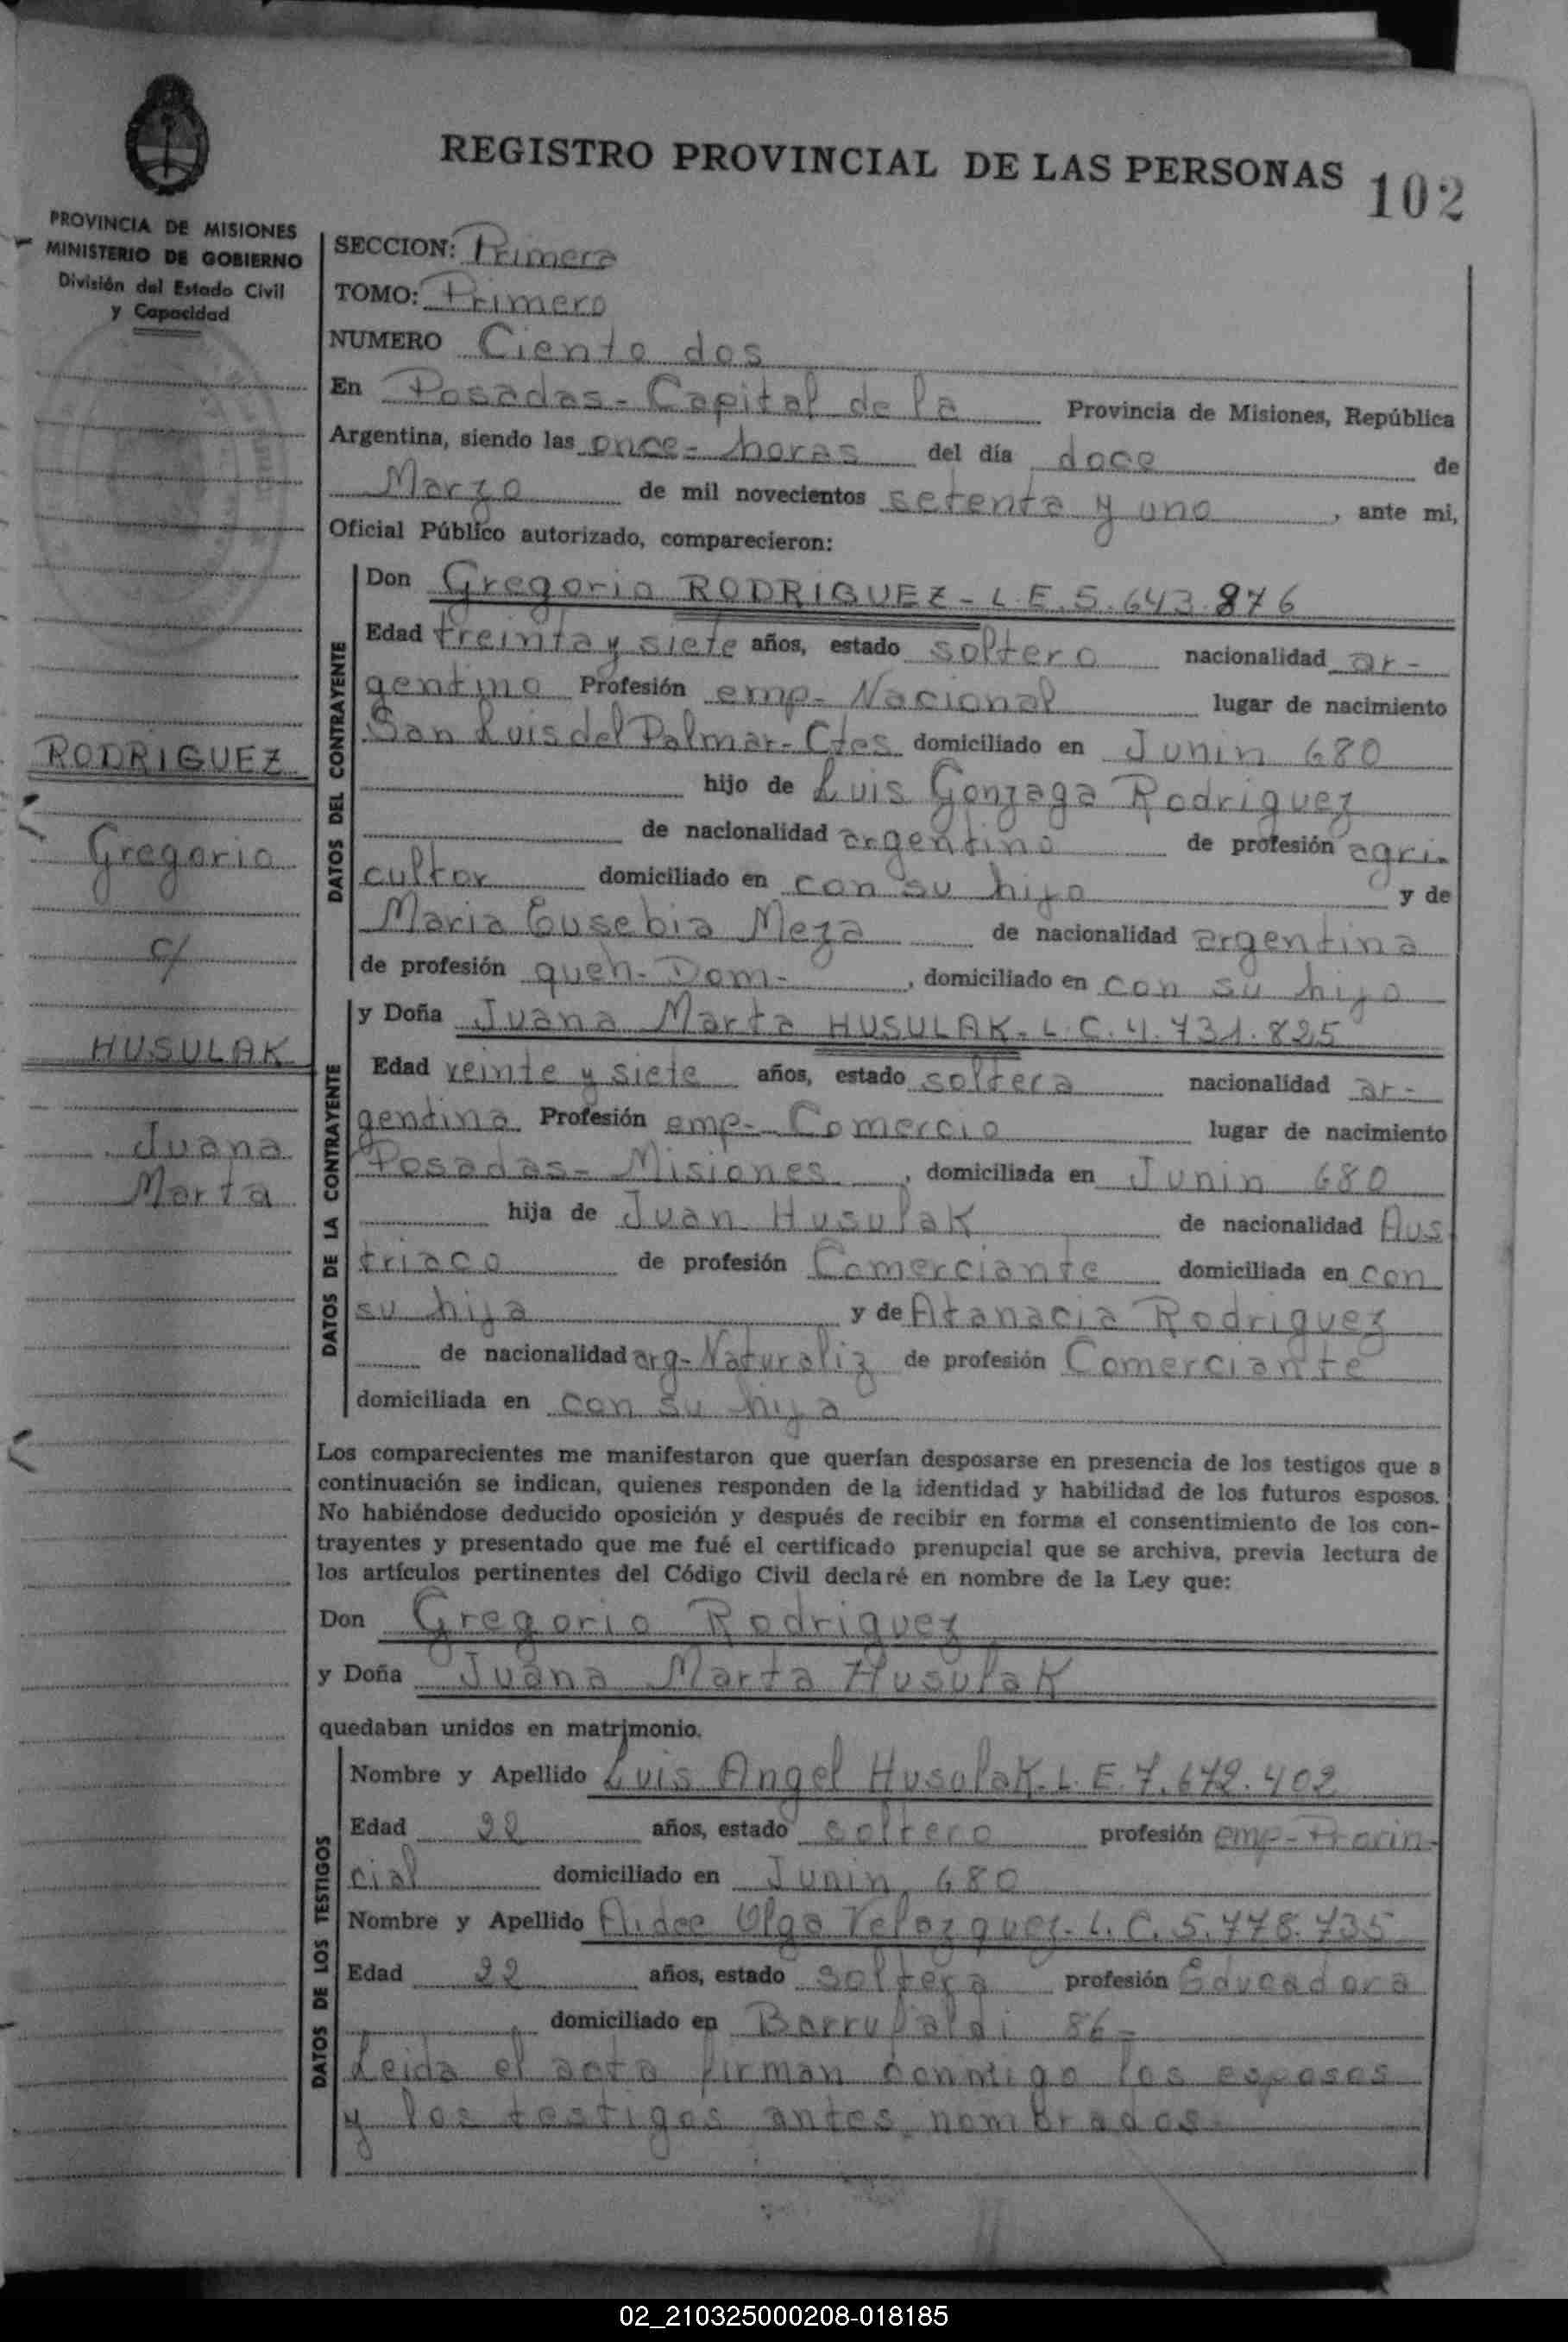 REGISTRO PROVINCIAL DE LAS PERSONAS 102
PROVINCIA DE MISIONES
MINISTERIO DE GOBIERNO
División del Estado Civil
y Capacidad
RODRIGUEZ
Gregorio
c/
HUSULAK
Juana
Marta
SECCION: Primera
TOMO: Primero
NUMERO Ciento dos
En Posadas - Capital de la Provincia de Misiones, República
Argentina, siendo las once - horas del día doce de
Marzo de mil novecientos setenta y uno, ante mi,
Oficial Público autorizado, comparecieron:
DATOS DEL CONTRAYENTE
Don Gregorio RODRIGUEZ - L.E. 5.643.876
Edad treinta y siete años, estado soltero nacionalidad ar-
gentino Profesión emp- Nacional lugar de nacimiento
San Luis del Palmar - Ctes domiciliado en Junin 680
hijo de Luis Gonzaga Rodriguez
de nacionalidad argentino de profesión agri-
cultor domiciliado en con su hijo y de
Maria Eusebia Meza de nacionalidad argentina
de profesión queh- Dom-, domiciliado en con su hijo
DATOS DE LA CONTRAYENTE
y Doña Juana Marta HUSULAK - L.C. 4.731.825
Edad veinte y siete años, estado soltera nacionalidad ar-
gentina Profesión emp- Comercio lugar de nacimiento
Posadas - Misiones, domiciliada en Junin 680
hija de Juan Husulak de nacionalidad Aus
triaco de profesión Comerciante domiciliada en con
su hija y de Atanacia Rodriguez
de nacionalidad arg- Naturaliz de profesión Comerciante
domiciliada en con su hija
Los comparecientes me manifestaron que querían desposarse en presencia de los testigos que a
continuación se indican, quienes responden de la identidad y habilidad de los futuros esposos.
No habiéndose deducido oposición y después de recibir en forma el consentimiento de los con-
trayentes y presentado que me fué el certificado prenupcial que se archiva, previa lectura de
los artículos pertinentes del Código Civil declaré en nombre de la Ley que:
Don Gregorio Rodriguez
y Doña Juana Marta Husulak
quedaban unidos en matrimonio.
DATOS DE LOS TESTIGOS
Nombre y Apellido Luis Angel Husulak - L.E. 7.672.402
Edad 22 años, estado soltero profesión emp- Provin-
cial domiciliado en Junin 680
Nombre y Apellido Aidee Olga Velazquez - L.C. 5.778.735
Edad 22 años, estado soltera profesión Educadora
domiciliado en Barrufaldi 86 -
Leida el acta firman conmigo los esposos
y los testigos antes nombrados.
02_210325000208-018185